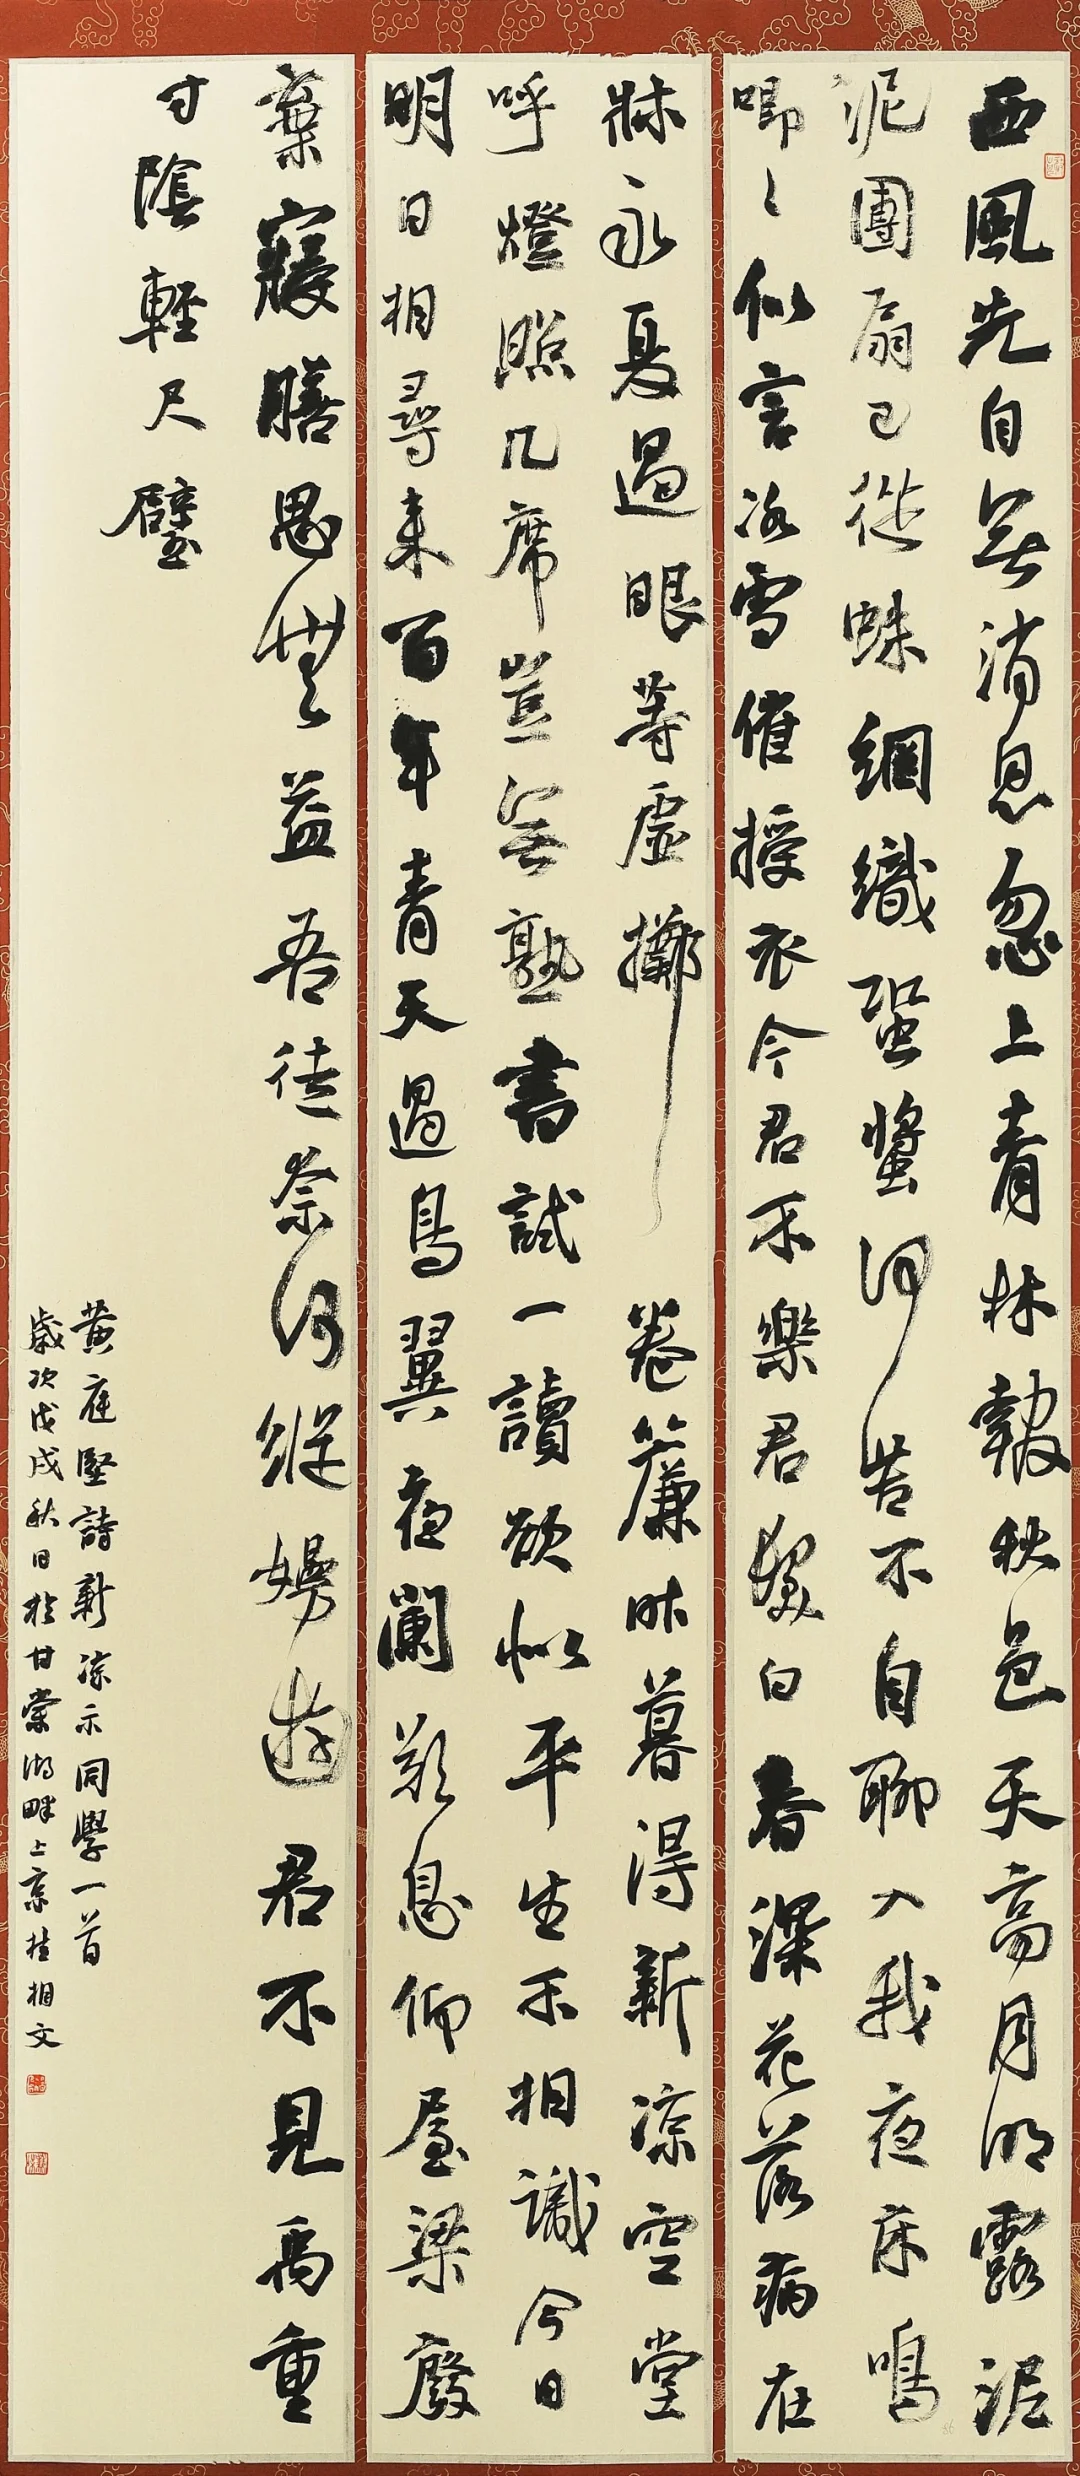 西風先自無消息忽上青林報秋色天高月明露泥
泥團扇已從蛛網織蛩螿何苦不自聊入我夜床鳴
唧々似言冰雪催授衣今君不樂君髮白春深花落病在
牀永夏過眼等虛擲卷簾昨暮得新涼空堂
呼燈照几席豈無熟書試一讀欲似平生不相識今日
明日相尋來百年青天過鳥翼夜闌歎息仰屋梁廢
棄寢膳思無益吾徒奈何縱嫚遊君不見禹重
寸陰輕尺璧
黃庭堅詩新涼示同學一首
歲次戊戌秋日於甘棠湖畔上京桂相文